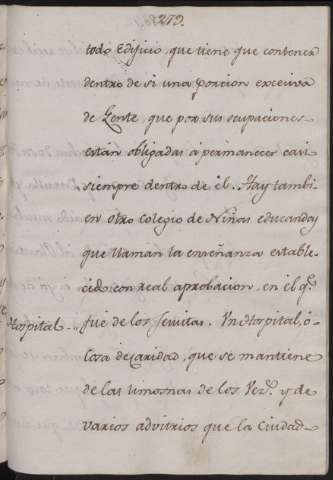 279.
todo Edificio que tiene que contener
dentro de si una porcion exceciva
de Gente, que por sus ocupaciones
estan obligadas a permanecer casi
siempre dentro de el. Hay tambi
en otro colegio de Niñas educandas
que llaman la enseñanza estable-
cido con Real aprobacion, en el q.ᵉ
Hospital.. fue de los Jesuitas. Un Hospital, ó
Casa de Caridad, que se mantiene
de las limosnas de los Vez.ˢ y de
varios advitrios que la Ciudad